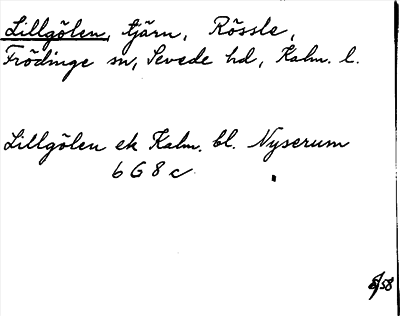 Lillgölen, tjärn, Rössle,
Frödinge sn, Sevede hd, Kalm. l.
Lillgölen ek Kalm. bl. Nyserum
6 G 8 c
/58